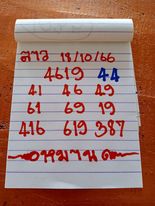 ลาว 18/10/66
4619 44
41 46 49
61 69 19
416 619 387